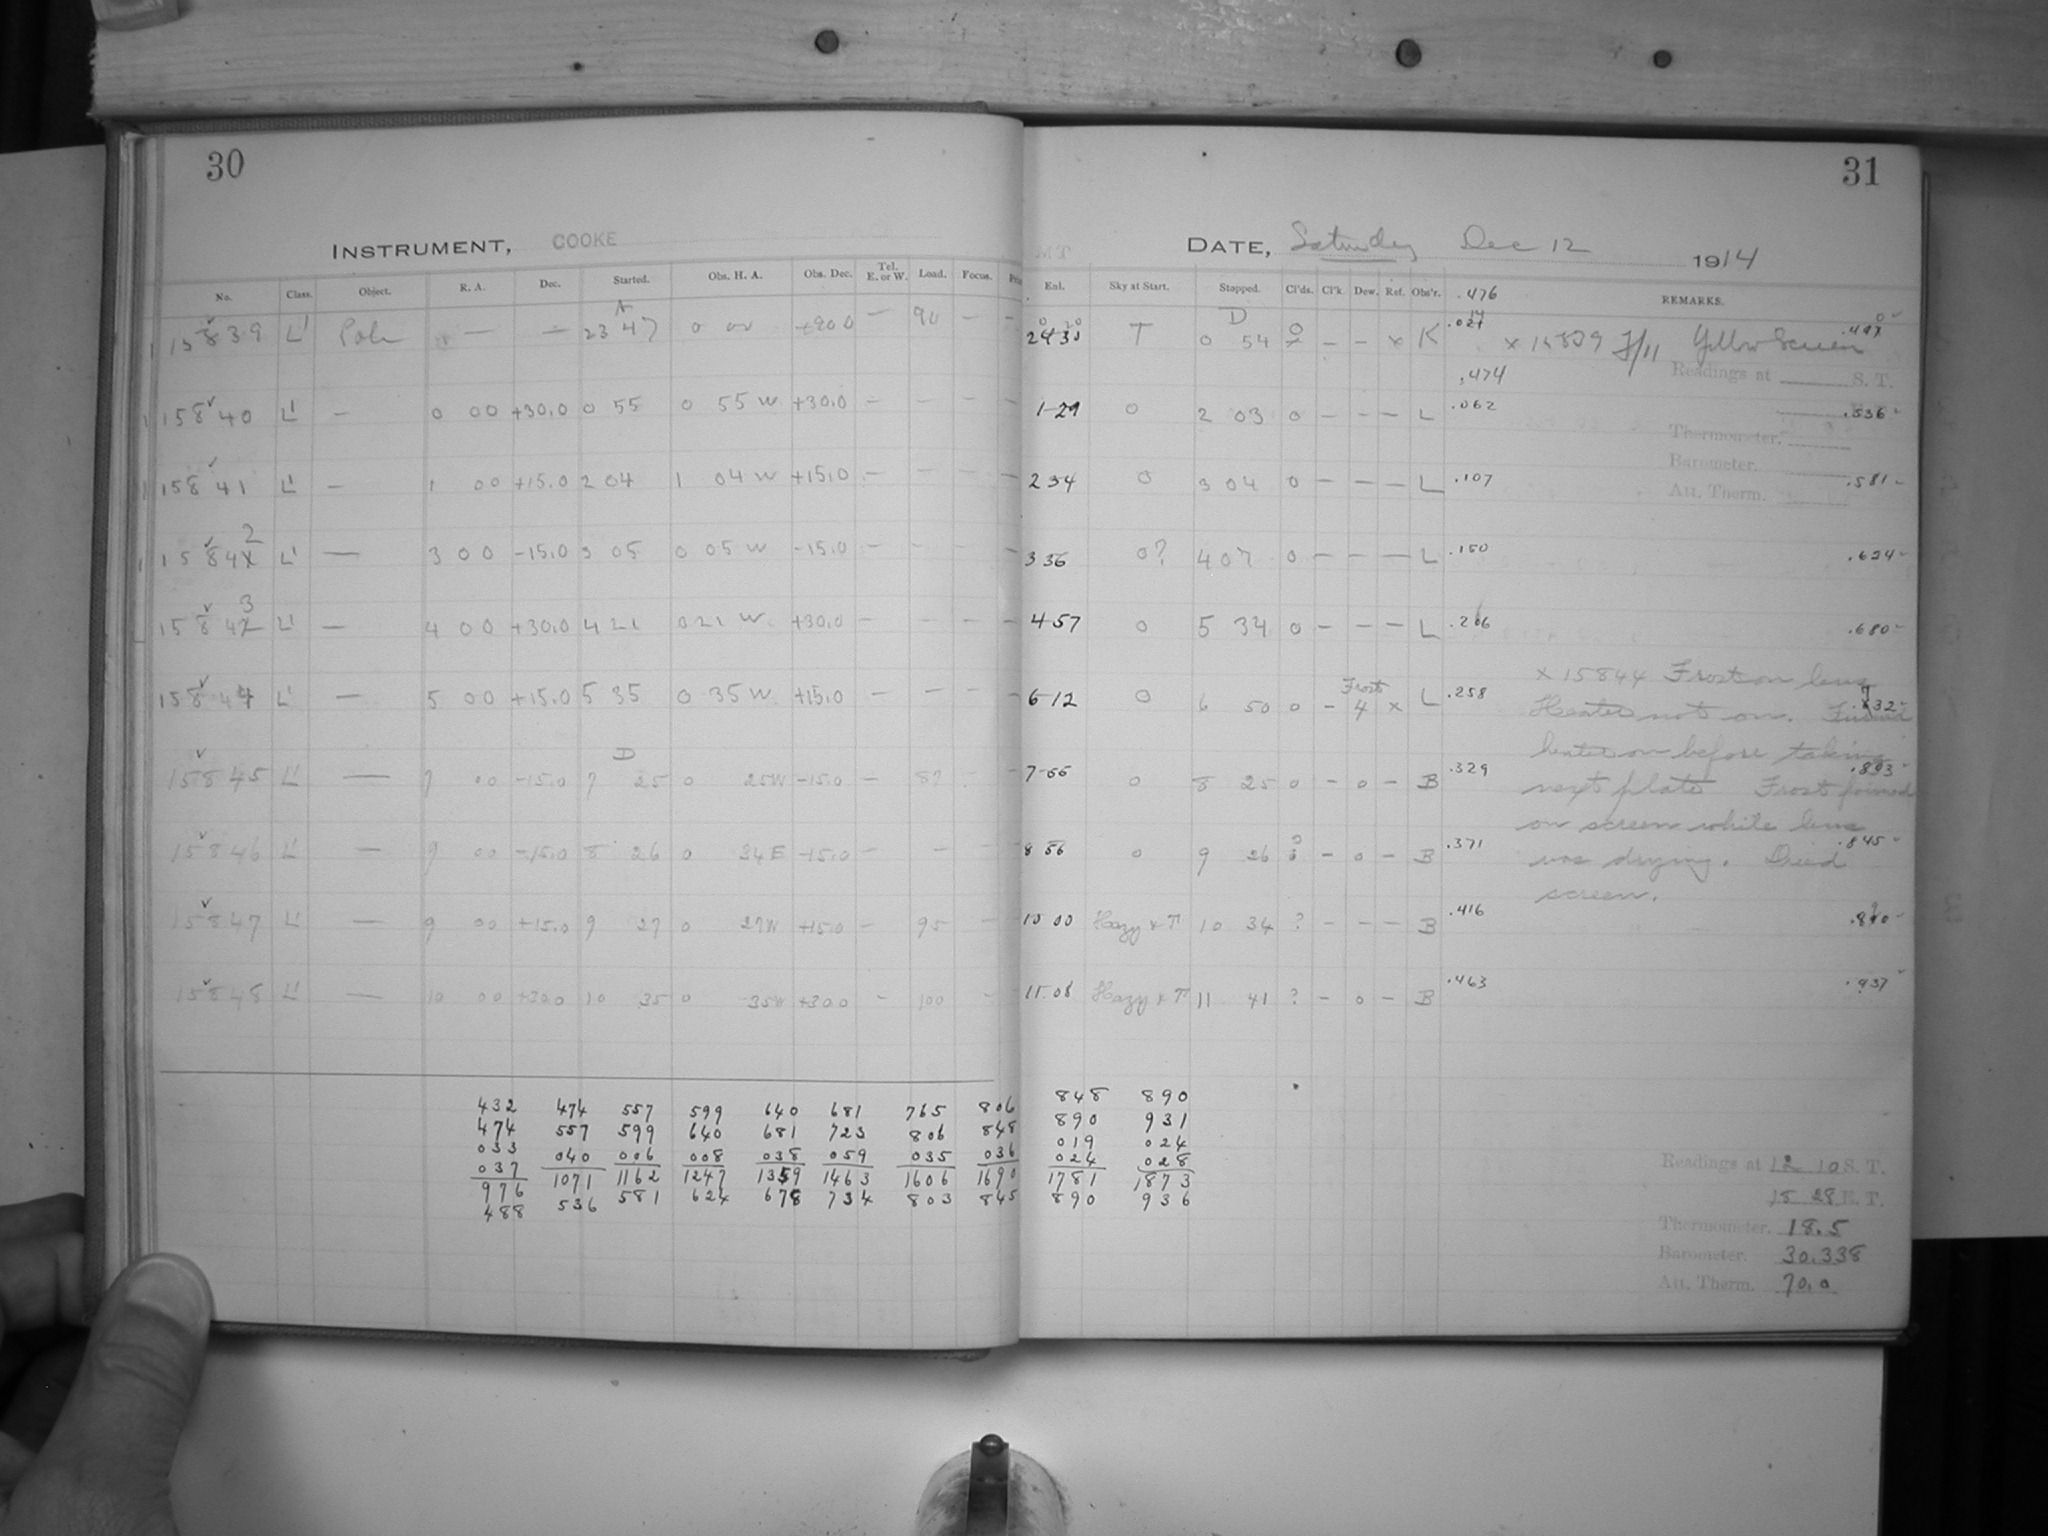 30
31
INSTRUMENT, COOKE
DATE, Saturday Dec 12 1914
No. Class. Object. R. A. Dec. Started. Obs. H. A. Obs. Dec. Tel. E. or W. Load. Focus.
Ent. Sky at Start. Stopped. Cl'ds. Cl'k. Dew. Ref. Obs'r. .476 REMARKS.
15839 L' Pole — — A 23 47 0 00 +90 0 — 90 — — T D 0 54 — — x K x 15839 F/11 Yellow Screen
Readings at S. T.
.474
15840 L' — 0 00 +30.0 0 55 0 55 W +30.0 — — — — 1-29 0 2 03 0 — — — L .062 .536
Thermometer.
Barometer.
15841 L' — 1 00 +15.0 2 04 1 04 W +15.0 — — — — 2 34 0 3 04 0 — — — L .107 .581
Att. Therm.
2
1584 L' — 3 00 -15.0 3 05 0 05 W -15.0 — — — — 3 36 0? 4 07 0 — — — L .150 .624
3
1584 L' — 4 00 +30.0 4 21 0 21 W. +30.0 — — — — 4 57 0 5 34 0 — — — L .206 .680
15844 L' — 5 00 +15.0 5 35 0 35 W. +15.0 — — — — 6-12 0 6 50 0 — Frost 4 x L .258 .732
x 15844 Frost on lens
Heater not on. Turned
heater on before taking
next plate Frost formed
on screen while lens
was drying. Dried
screen.
15845 L' — 7 00 -15.0 D 7 25 0 25W -15.0 — 87 — 7-55 0 8 25 0 — 0 — B .329 .803
15846 L' — 9 00 -15.0 8 26 0 34E -15.0 — — — 8 56 0 9 26 — 0 — B .371 .845
15847 L' — 9 00 +15.0 9 27 0 27W +15.0 — 95 — 10 00 Hazy & T 10 34 ? — — — B .416 .890
15848 L' — 10 00 +30.0 10 35 0 35W +30.0 — 100 — 11.08 Hazy & T 11 41 ? — 0 — B .463 .937
432 474 557 599 640 681 765 806 848 890
474 557 599 640 681 723 806 848 890 931
033 040 006 008 038 059 035 036 019 024
037 1071 1162 1247 1359 1463 1606 1690 024 028
976 536 581 624 678 734 803 845 1781 1873
488 890 936
Readings at 12 10 S. T.
15 28 E. T.
Thermometer. 18.5
Barometer. 30.338
Att. Therm. 70.0